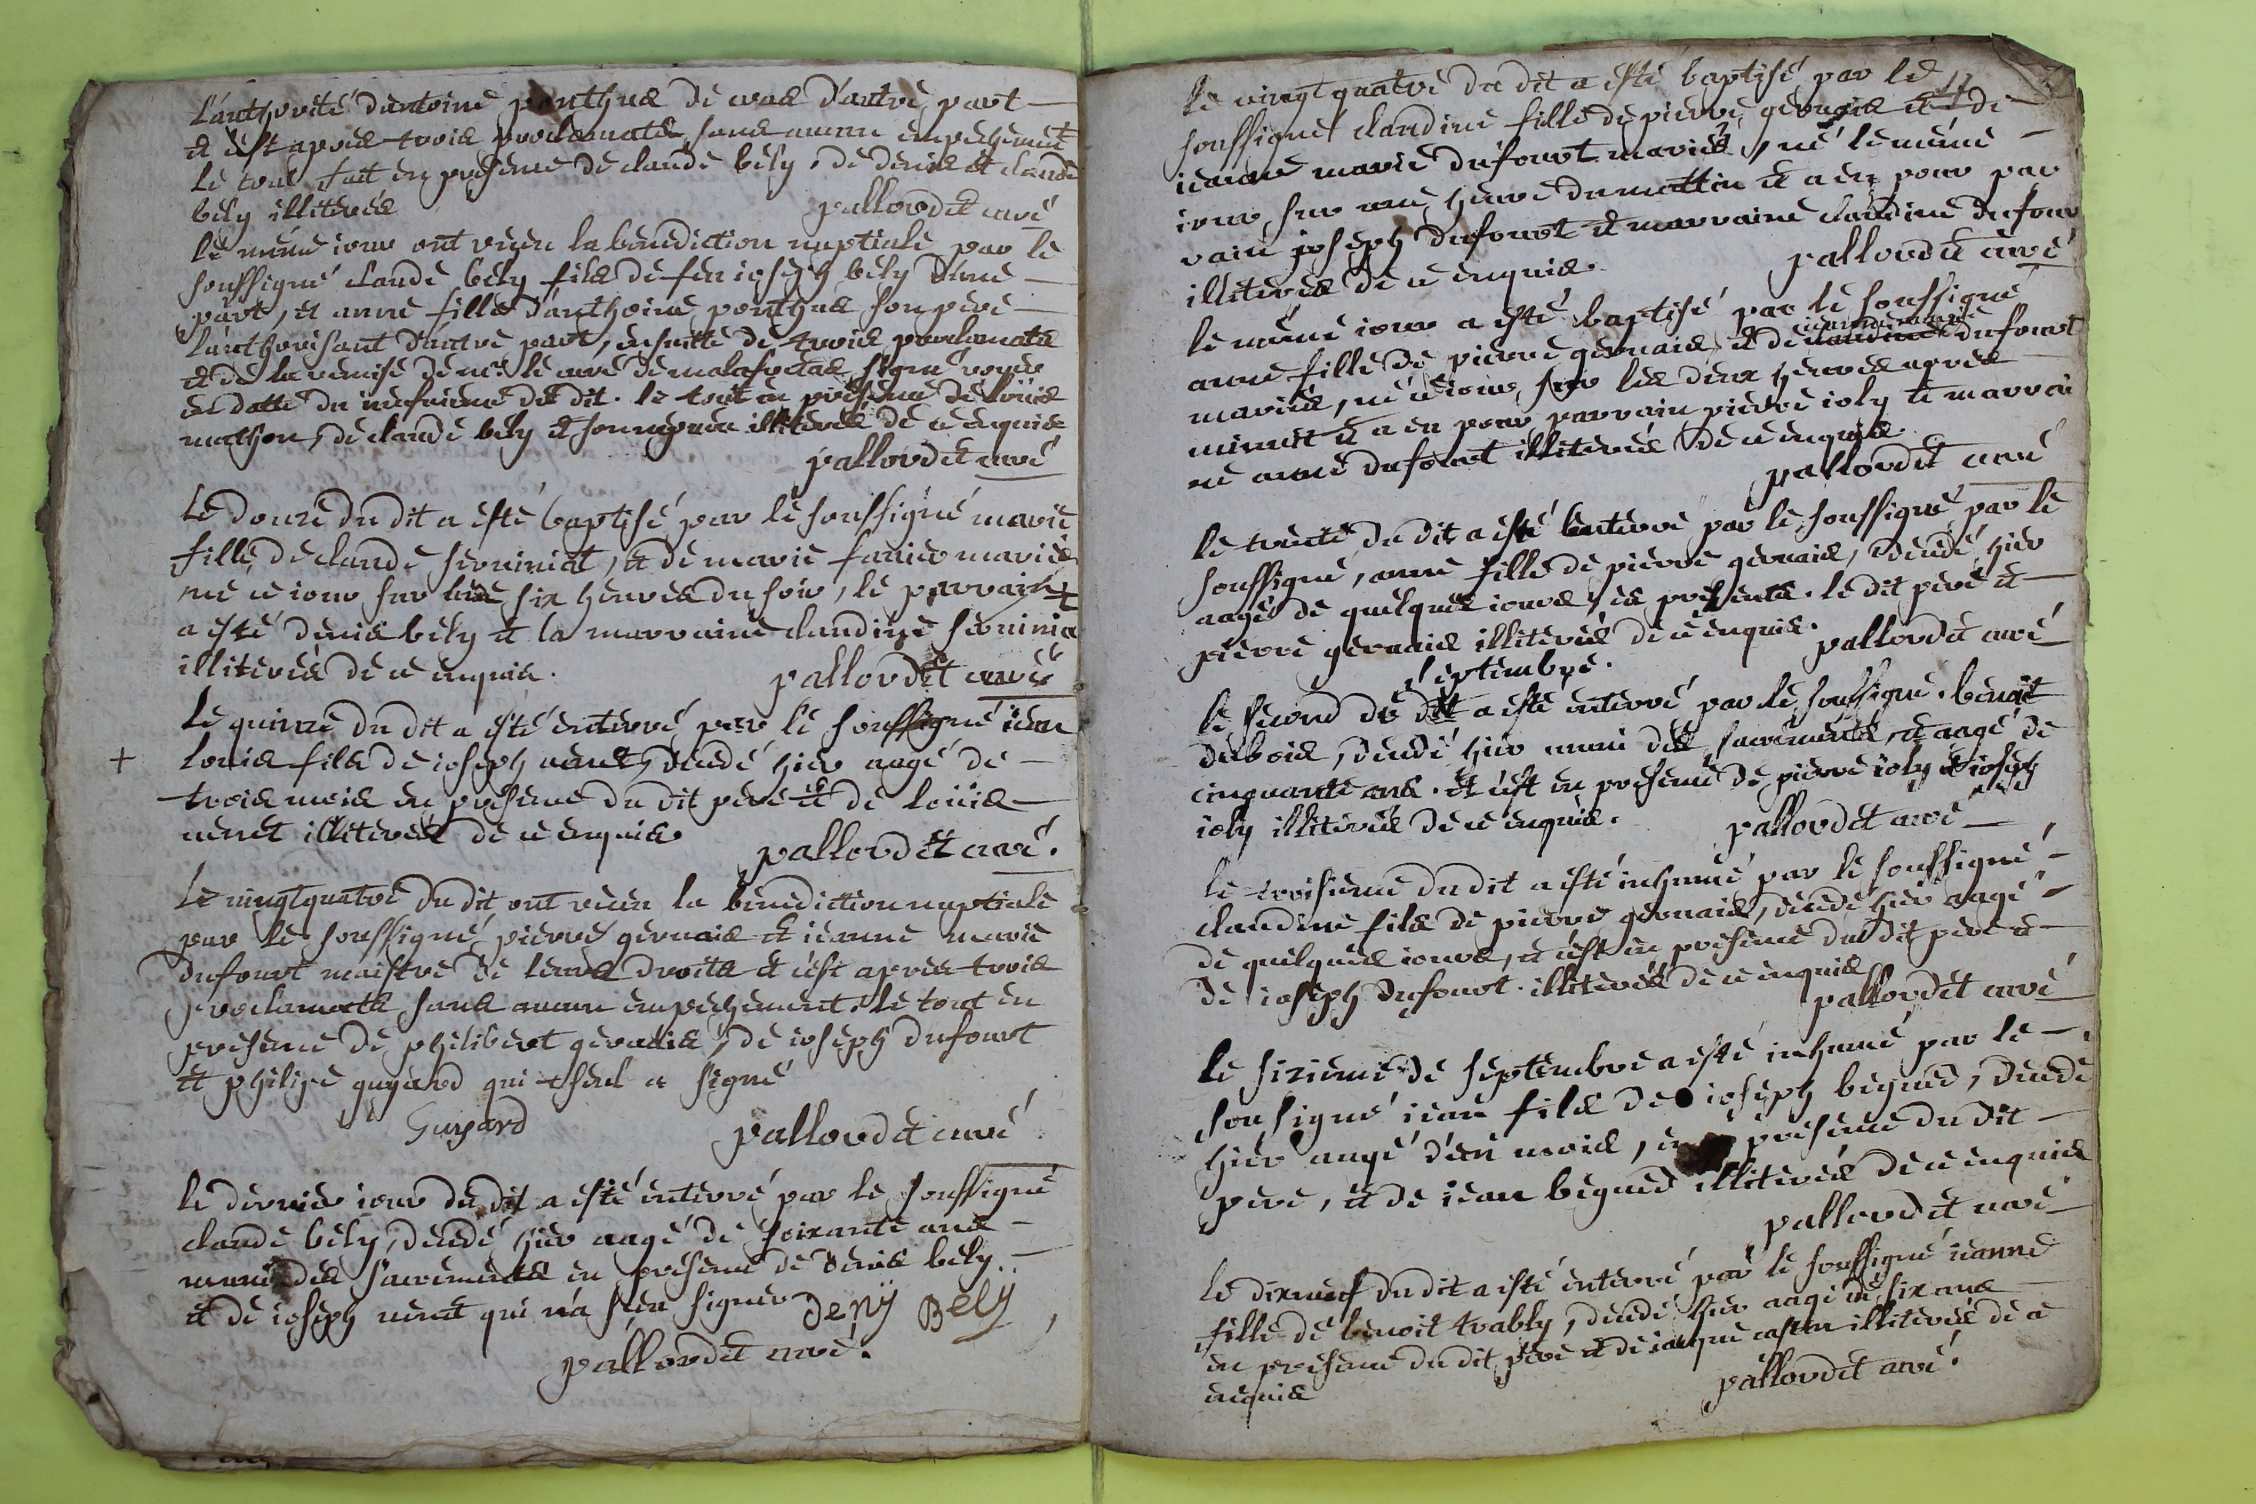 l'authorité d'antoine ponthus de cras d'autre part
et c'est apres trois proclamats sans aucun empechement
le tout fait en presence de claude bely, de denis et claude
bely illiterés pallordet curé
le même iour ont reçeu la benediction nuptiale par le
soussigné claude bely fils de feu ioseph bely d'une
part, et anne fille d'anthoine ponthus son pere
l'authorisant d'autre part, ensuitte de trois proclamats
et de la remise de mr. le curé de malafretas signé
en datte du du dit. le tout en presence de loüis
mathon, de claude bely et illiterés de ce enquis
pallordet curé
Le douze du dit a esté baptisé par le soussigné marie
fille de claude et de marie mariés
née ce iour sur les six heures du soir, le parrain
a esté denis bely et la marraine claudine
illiterés de ce enquis. pallordet curé
Le quinze du dit a esté enterré par le soussigné iean
+ louis fils de ioseph venet, decedé hier aagé de
trois mois en presence du dit pere et de loüis
venet illiterés de ce enquis
pallordet curé.
Le vingt quatre du dit ont reçeu la benediction nuptiale
par le soussigné pierre gervais et ieanne marie
dufourt maistre de leurs droits et c'est apres trois
proclamats sans aucun empechement. le tout en
presence de philibert gervais, de ioseph dufourt
et philipe guyard qui seul a signé
Guyard pallordet curé
le dernier iour du dit a esté enterré par le soussigné
claude bely, decedé hier aagé de soixante ans
muni des sacrements en presence de denis bely
et de ioseph venet qui n'a sceu signer Deny Bely
pallordet curé.
le vingt quatre du dit a esté baptisé par le 17
soussigné claudine fille de pierre gervais et de
ieanne marie dufourt mariés, né le même
iour sur une heure du mattin et a eu pour par
rain ioseph dufourt et marraine claudine dufour
illiterés de ce enquis.
pallordet curé
le même iour a esté baptisé par le soussigné
anne fille de pierre gervais et de ieanne marie dufourt
mariés, né ce iour sur les deux heures apres
minuit et a eu pour parrain pierre ioly et marrai
ne anne dufourt illiterés de ce enquis.
pallordet curé
le trente du dit a esté enterré par le soussigné par le
soussigné, anne fille de pierre gervais, decedé hier
aagée de quelques iours, es presents. le dit pere et
pierre gervais illiterés de ce enquis.
pallordet curé
septembre.
le second du dit a esté enterré par le soussigné. benoit
dubois, decedé hier muni des sacrements, et aagé de
cinquante ans. et c'est en presence de pierre ioly et ioseph
ioly illiterés de ce enquis. pallordet curé
le troisieme du dit a esté inhumé par le soussigné
claudine fils de pierre gervais, decedé hier aagé
de quelques iours, et c'est en presence du dit pere et
de ioseph dufourt. illiterés de ce enquis
pallordet curé
le sixieme de septembre a esté inhumé par le
sousigné iean fils de ioseph beguet, decedé
hier aagé d'un mois, en presence du dit
pere, et de iean beguet illiterés de ce enquis
pallordet curé
Le dixneuf du dit a esté enterré par le soussigné ieanne
fille de benoit trably, decedé hier aagé de six ans
en presence du dit pere et de iaque illiterés de ce
enquis pallordet curé.